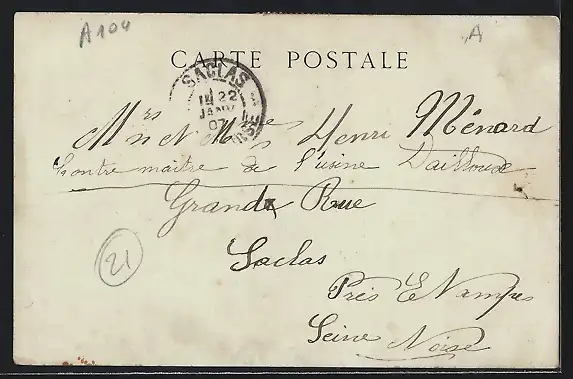 A104
A
CARTE POSTALE
SACLAS
22
JANV
07
Mrs et Mme Henri Ménard
Contre maitre de l'usine
Grande Rue
21
Saclas
Près ETampes
Seine Noise